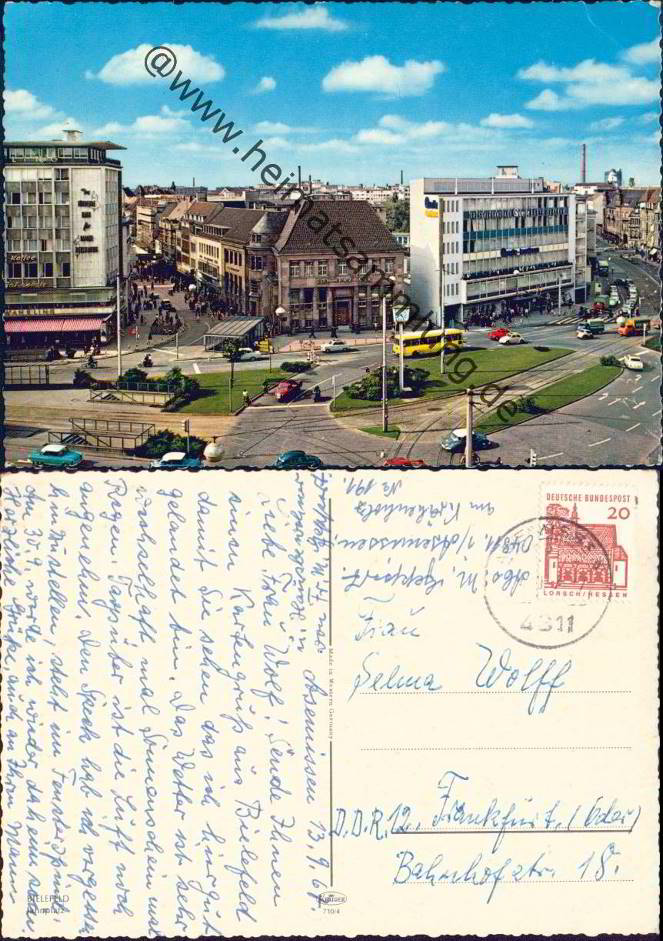 @www.heimatsammlung.de
Kaffee
DEUTSCHE BUNDESPOST
20
LORSCH/HESSEN
4811
Abs: M. Geppert
4811 1/Asemissen
am Krähenholz
No 191.
Frau
Selma Wolff
D.D.R. 12. Frankfurt, (Oder)
Bahnhofstr. 18.
Made in Western Germany
Asemissen 13.9.6
Liebe Frau Wolf! Sende Ihnen
einen Kartengruß aus Bielefeld
damit Sie sehen das ich hier gut
gelandet bin. Das Wetter ist sehr
wechselhaft mal Sonnenschein mal
Regen. Tagsüber ist die Luft noch
angenehm. Den Speck hab ich vergessen
hinzustellen, steht im Fensterspind.
Am 30.9. werde ich wieder daheim sein
Herzliche Grüße, auch an Ihren Mann
BIELEFELD
Jahnplatz
KRÜGER
710/4